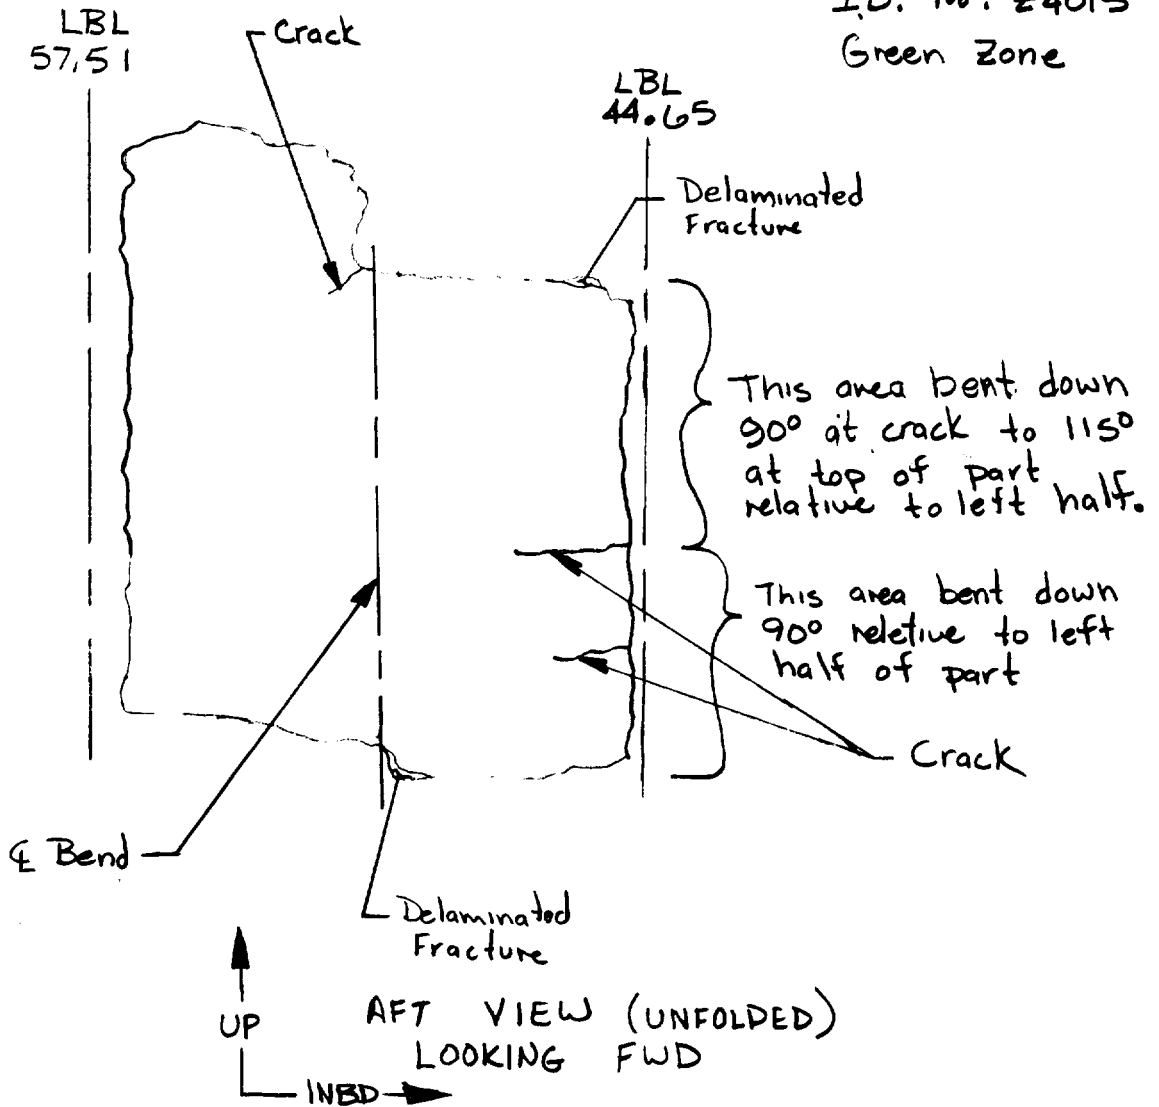 LBL
57.51
Crack
Green Zone
LBL
44.65
Delaminated
Fracture
This area bent down
90° at crack to 115°
at top of part
relative to left half.
This area bent down
90° reletive to left
half of part
Crack
℄ Bend
Delaminated
Fracture
UP
INBD
AFT VIEW (UNFOLDED)
LOOKING FWD